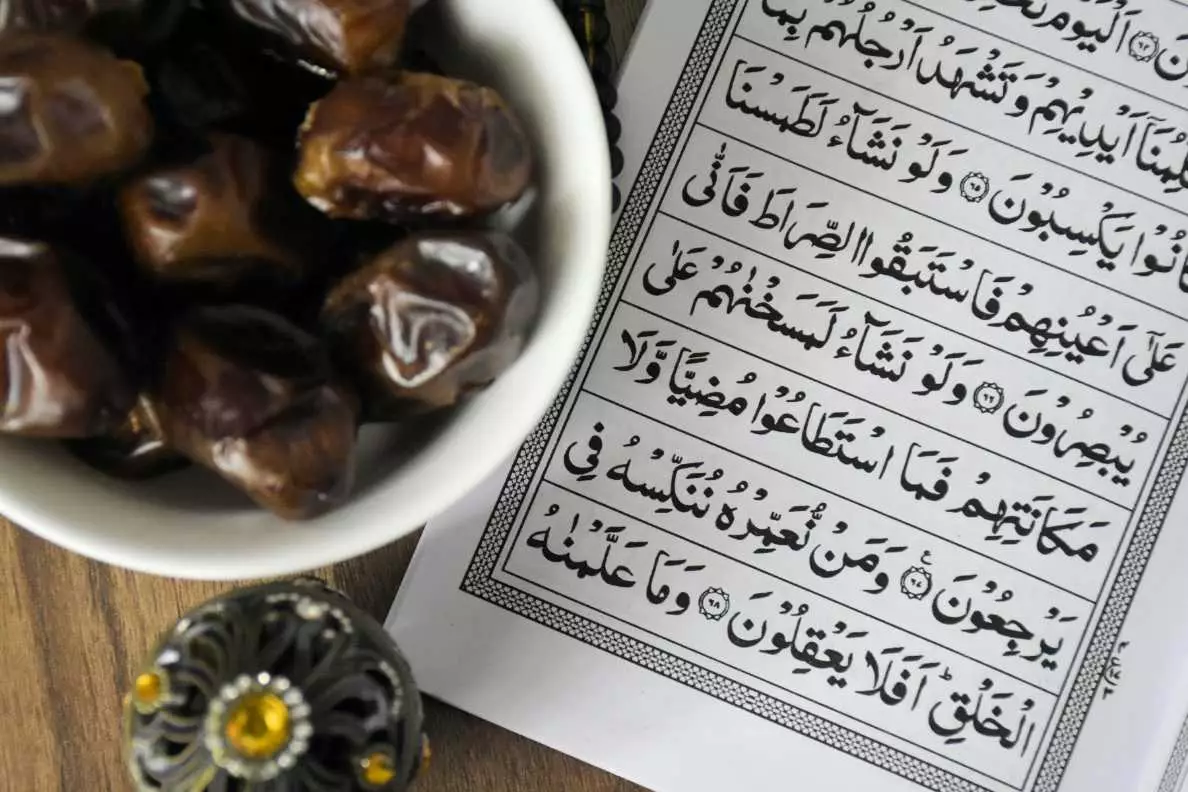 ۝۶۴ اَلْيَوْمَ
اَيْدِيْهِمْ وَتَشْهَدُ اَرْجُلُهُمْ بِمَا
كَانُوْا يَكْسِبُوْنَ ۝۶۵ وَلَوْ نَشَآءُ لَطَمَسْنَا
عَلٰٓى اَعْيُنِهِمْ فَاسْتَبَقُوا الصِّرَاطَ فَاَنّٰى
يُبْصِرُوْنَ ۝۶۶ وَلَوْ نَشَآءُ لَمَسَخْنٰهُمْ عَلٰى
مَكَانَتِهِمْ فَمَا اسْتَطَاعُوْا مُضِيًّا وَّلَا
يَرْجِعُوْنَ ۝۶۷ ع وَمَنْ نُّعَمِّرْهُ نُنَكِّسْهُ فِى
الْخَلْقِ ؕ اَفَلَا يَعْقِلُوْنَ ۝۶۸ وَمَا عَلَّمْنٰهُ